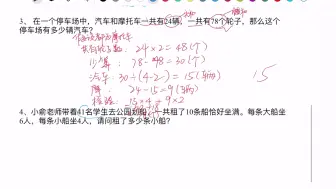 3、在一个停车场中，汽车和摩托车一共有24辆，一共有78个轮子，那么这个
停车场有多少辆汽车？
24×2=48(个)
78-48=30(个)
汽车：30÷(4-2)=15(辆)
24-15=9(辆)
15×4+9×2
15
4、小俞老师带着41名学生去公园划船，一共租了10条船恰好坐满。每条大船坐
6人，每条小船坐4人，请问租了多少条小船？